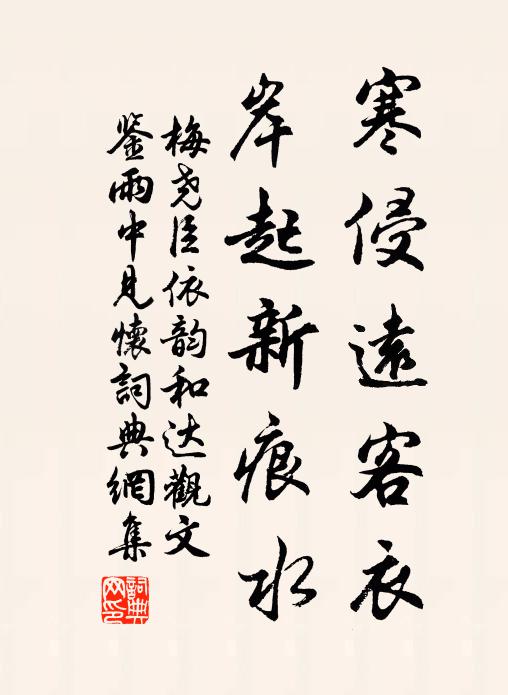 寒侵遠客衣
岸起新痕水
梅尧臣依韵和达觀文
鉴雨中見懷詞典網集
詞典网印